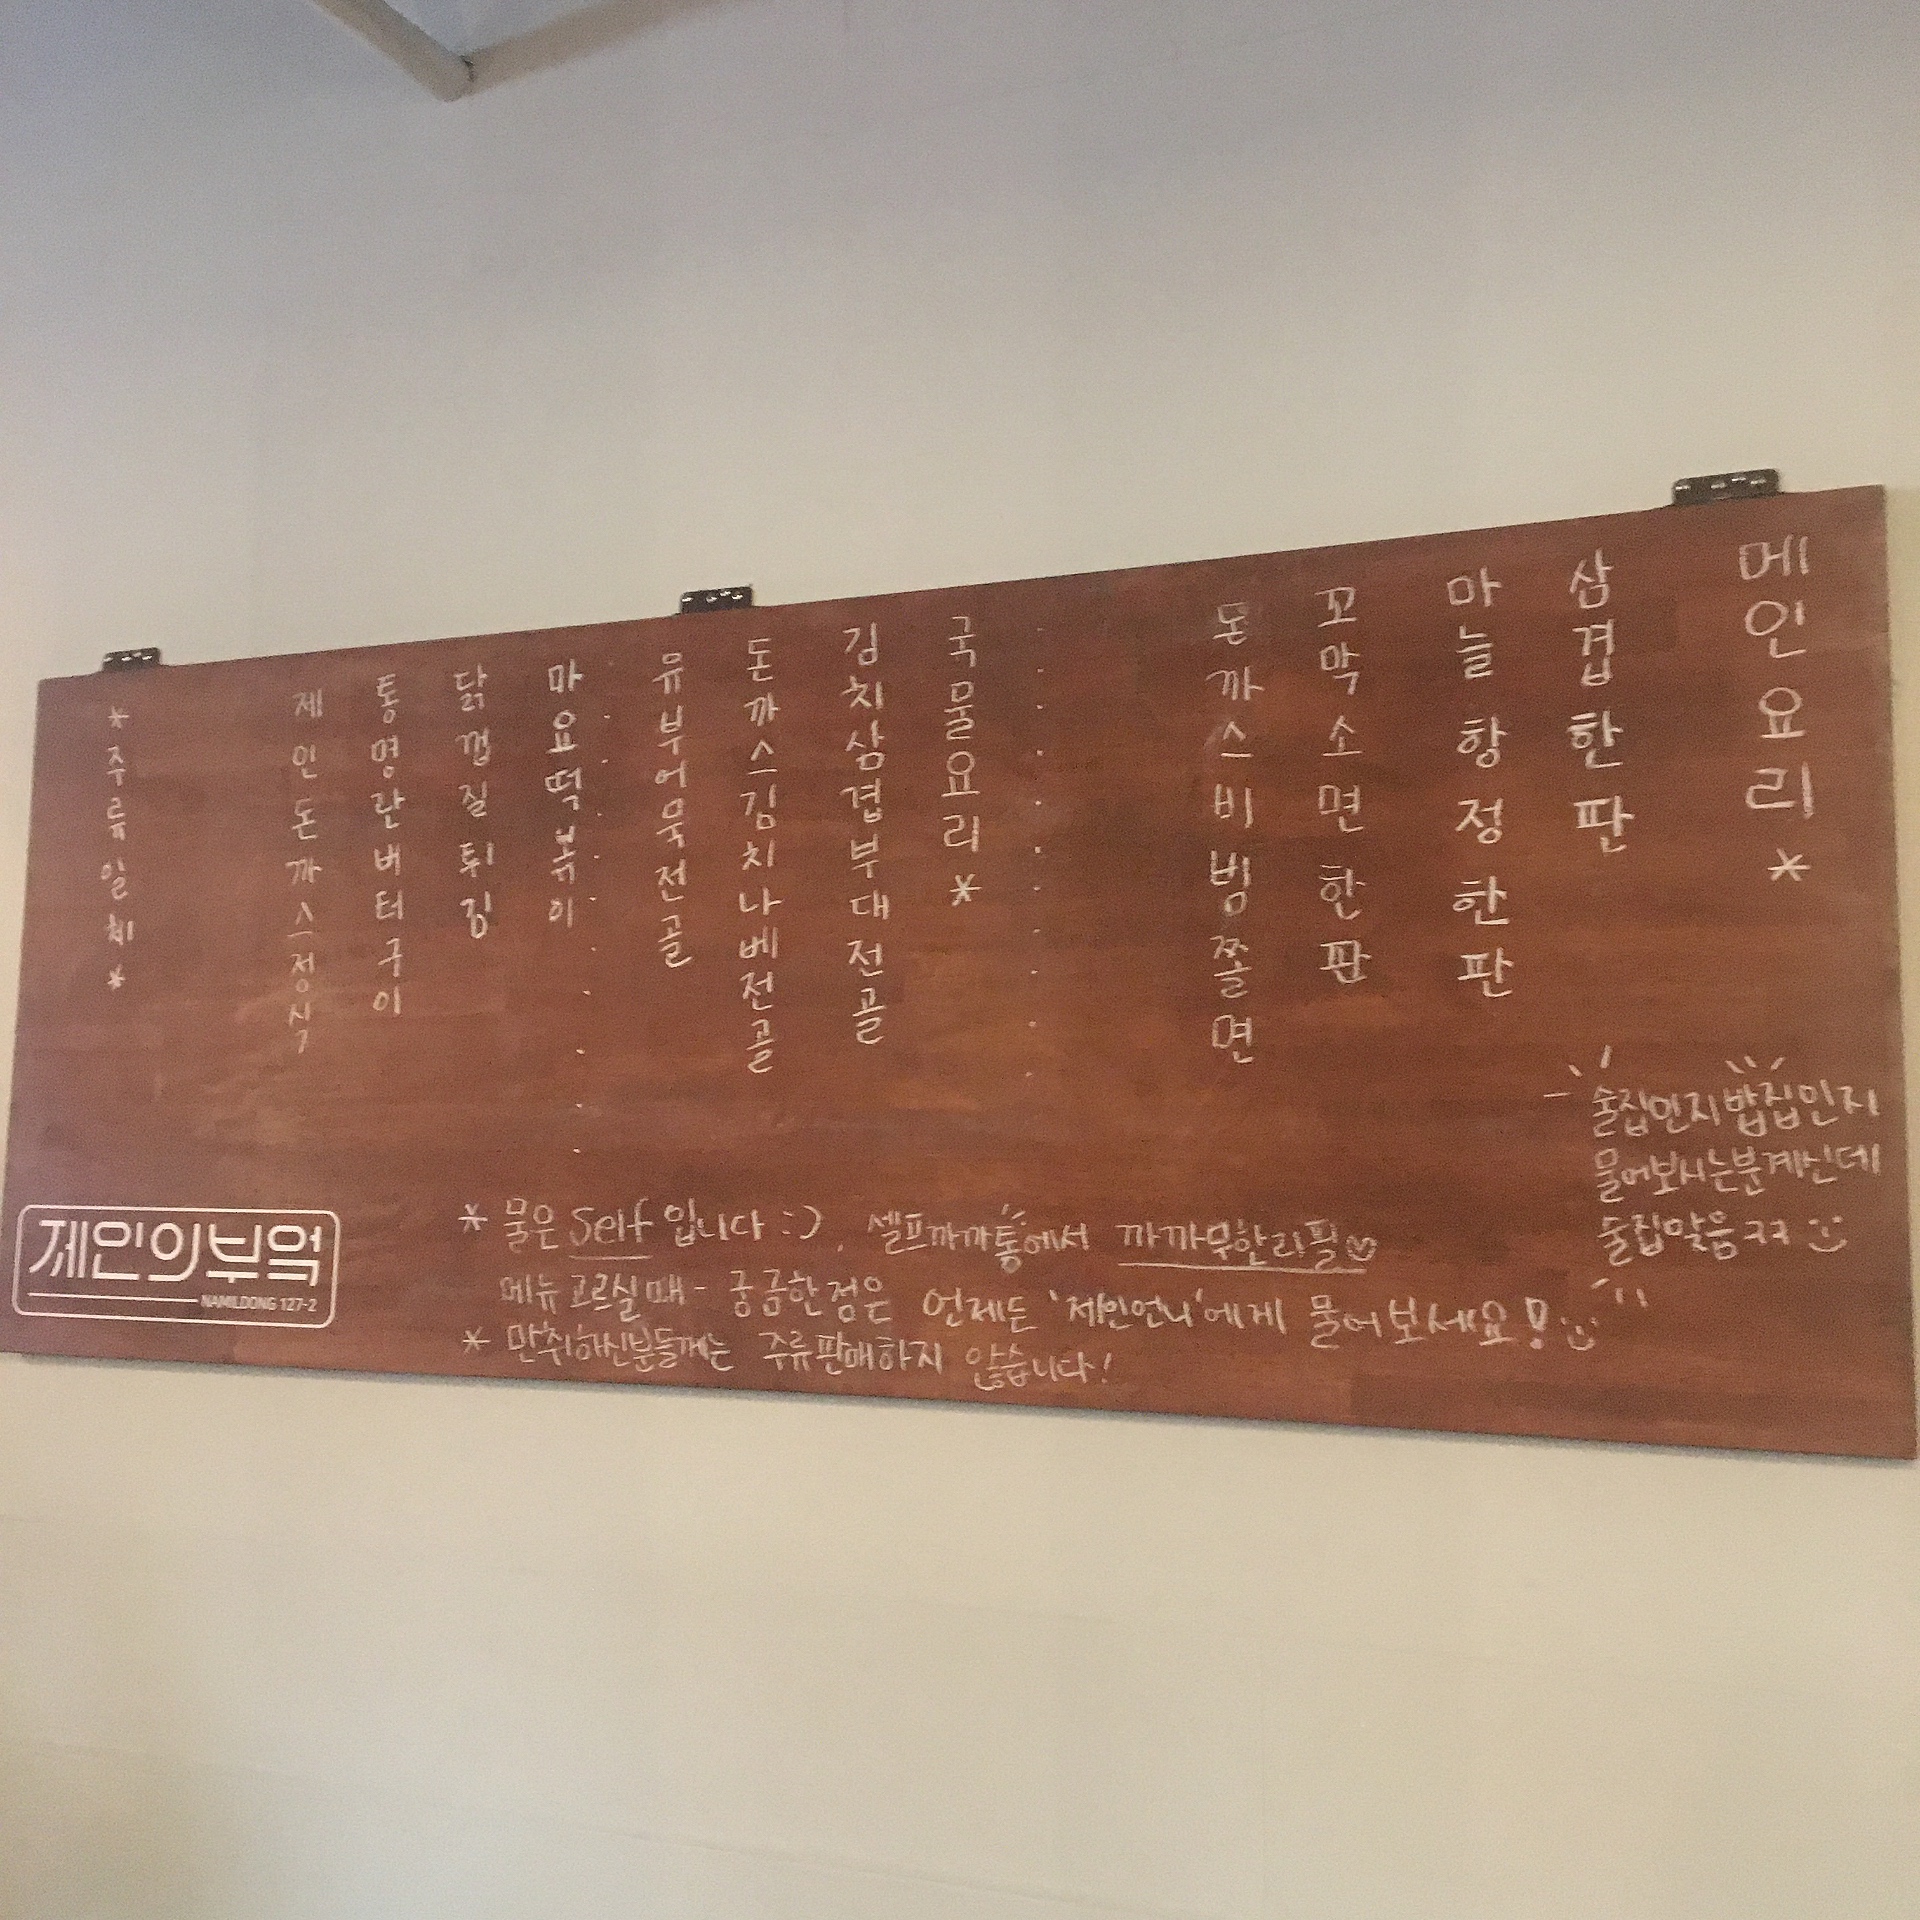 메인요리*
삼겹한판
마늘항정한판
꼬막소면한판
돈까스비빔쫄면
국물요리*
김치삼겹부대전골
돈까스김치나베전골
유부어묵전골
마요떡볶이
닭껍질튀김
통명란버터구이
제인돈까스정식
*주류일체*
술집인지밥집인지
물어보시는분계신데
술집맞음ㅋㅋ
* 물은 Self 입니다 :) . 셀프까까통에서 까까무한리필♡
메뉴 고르실때- 궁금한점은 언제든 '제인언니'에게 물어보세요!
* 만취하신분들께는 주류판매하지 않습니다!
제인의부엌
NAMILDONG 127-2